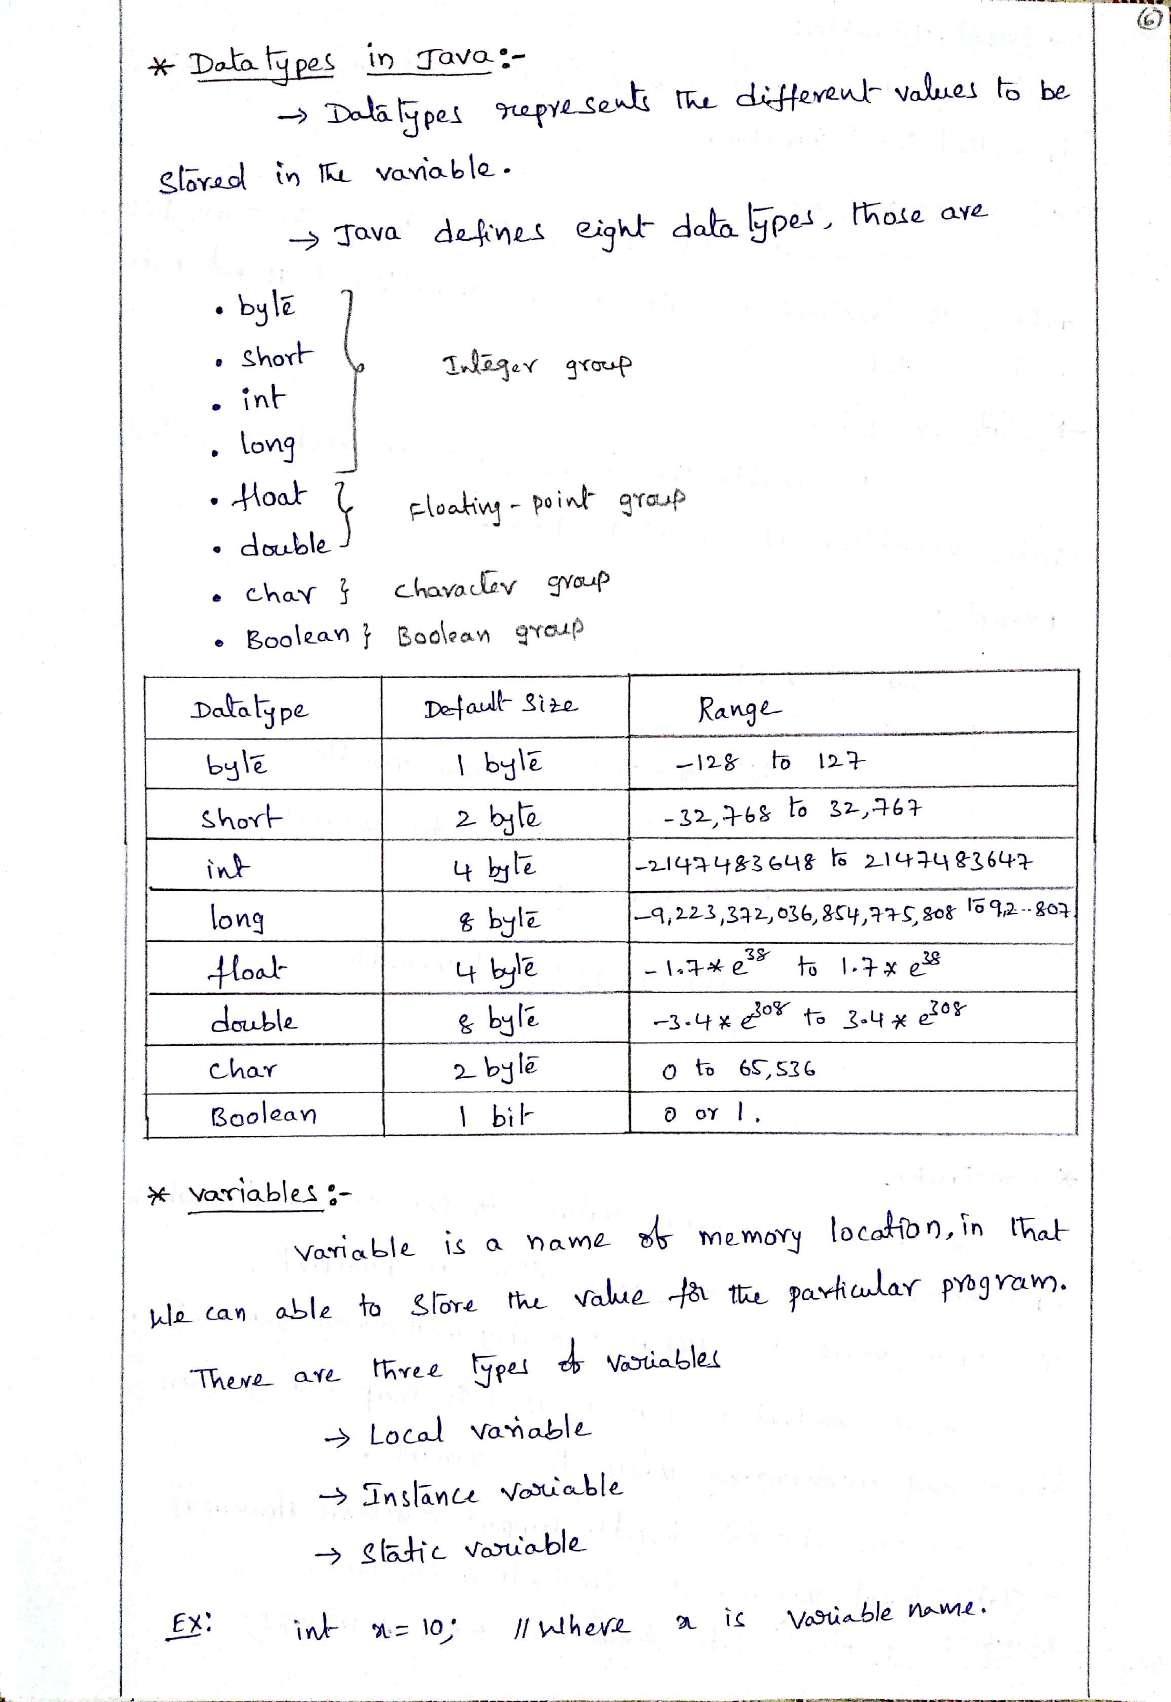 6
* Data types in Java :-
→ Data types represents the different values to be
stored in the variable.
→ Java defines eight data types, those are
• byte
• short
Integer group
• int
• long
• float
Floating-point group
• double
• char } character group
• Boolean } Boolean group
Datatype Default Size Range
byte 1 byte -128 to 127
short 2 byte -32,768 to 32,767
int 4 byte -2147483648 to 2147483647
long 8 byte -9,223,372,036,854,775,808 to 9,2..807
float 4 byte -1.7*e^38 to 1.7*e^38
double 8 byte -3.4*e^308 to 3.4*e^308
char 2 byte 0 to 65,536
Boolean 1 bit 0 or 1.
* Variables :-
Variable is a name of memory location, in that
we can able to store the value for the particular program.
There are three types of variables
→ Local variable
→ Instance variable
→ Static variable
Ex: int x = 10; // Where x is variable name.